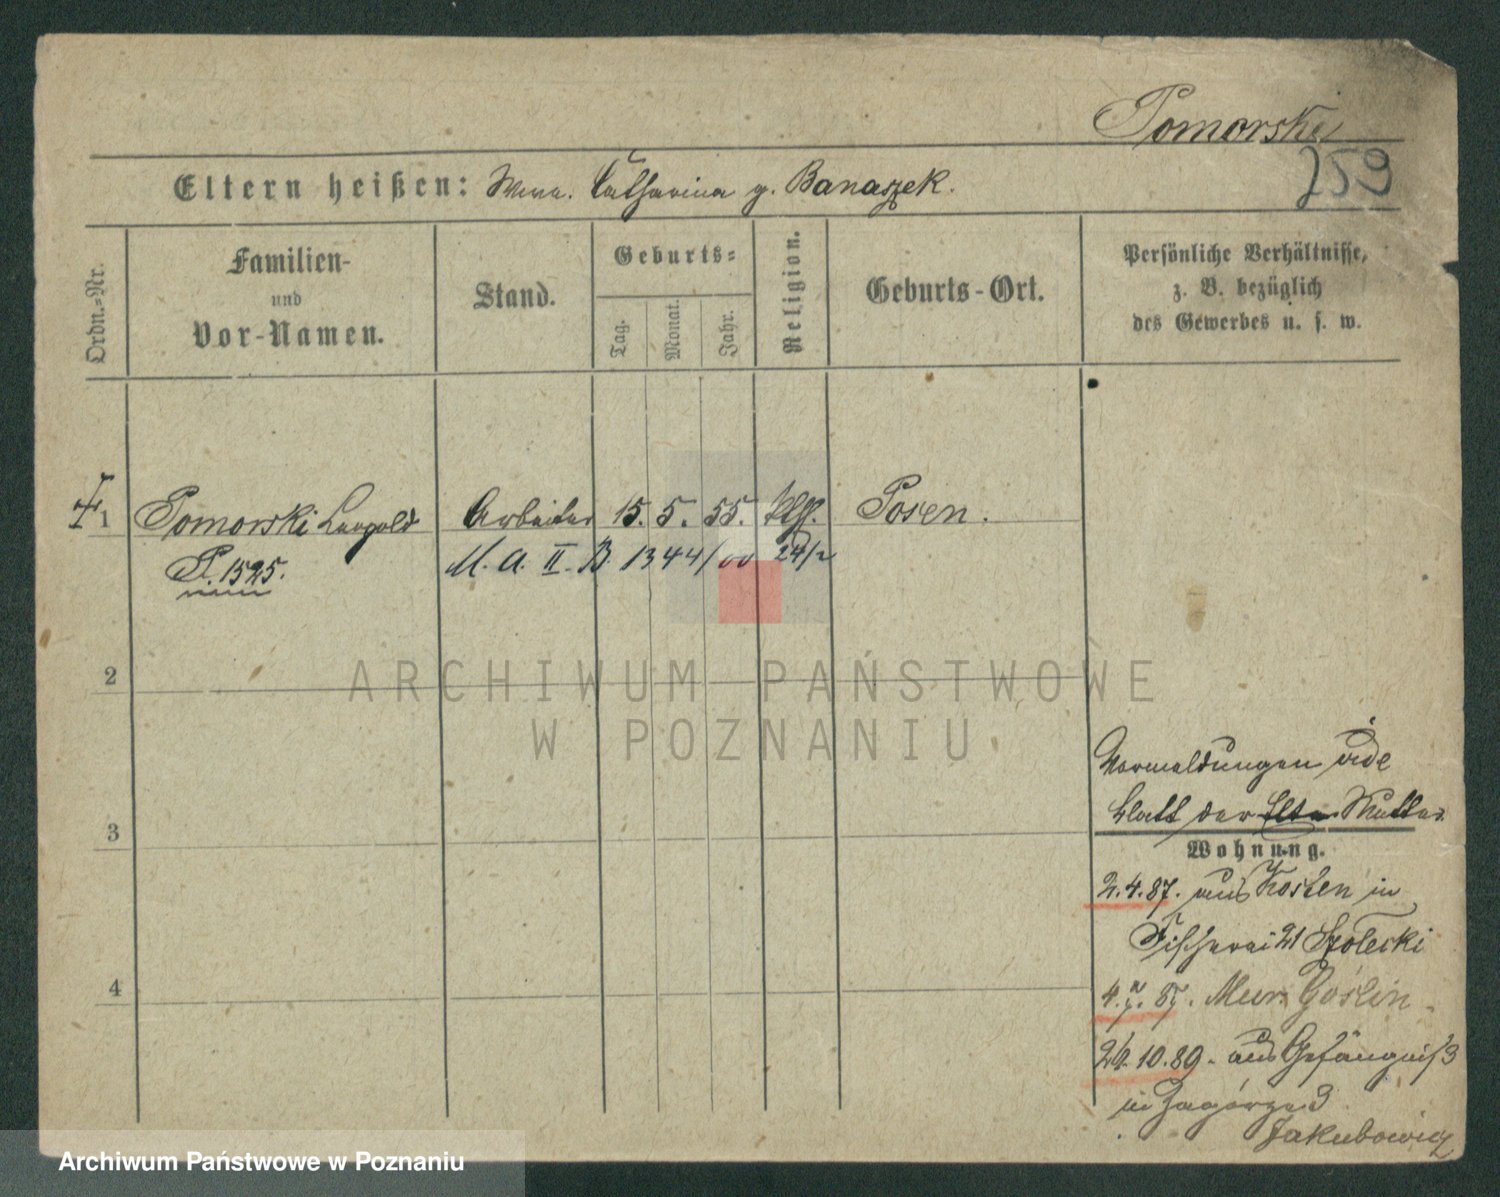 Pomorski
259
Eltern heißen: Wwe. Catharina g. Banaszek.
Ordn.-Nr.
Familien-
und
Vor-Namen.
Stand.
Geburts-
Tag.
Monat.
Jahr.
Religion.
Geburts-Ort.
Persönliche Verhältnisse,
z. B. bezüglich
des Gewerbes u. s. w.
1 Pomorski Leopold Arbeiter 15. 5. 55. Posen.
P. 1525. M. A. II. B. 1344/00 24/2
2
3
4
Vormeldungen vide
Blatt der Mutter
Wohnung.
2.4.87. aus Kosten in
Fischerei 21
87. Mur. Goslin
10.89. aus Gefängniß
in Zagorze 3
Jakubowicz
ARCHIWUM PAŃSTWOWE
W POZNANIU
Archiwum Państwowe w Poznaniu